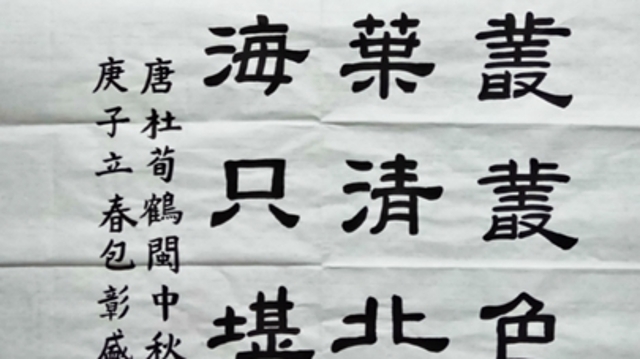 叢叢色
葉清北
海只堪
唐杜荀鶴閩中秋
庚子立春包彰盛